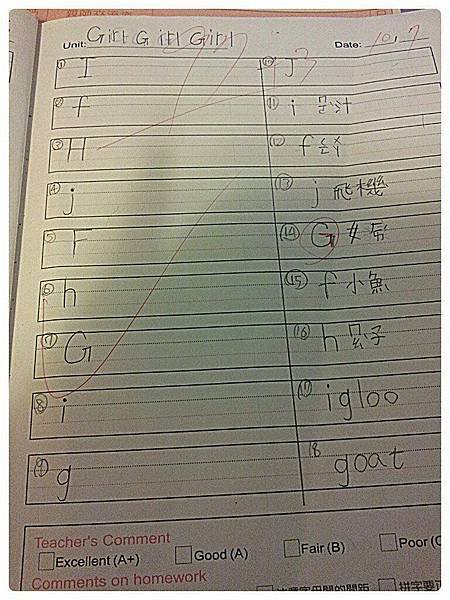 Unit: Girl Girl Girl
Date: 10, 7
① I
② f
③ H
④ j
⑤ F
⑥ h
⑦ G
⑧ i
⑨ g
⑩ J
⑪ i
⑫ f
⑬ j 飛機
⑭ G 女
⑮ f 小魚
⑯ h 子
⑰ igloo
18 goat
Teacher's Comment
Excellent (A+) Good (A) Fair (B) Poor (C
Comments on homework
注意字母間的間距 拼字要